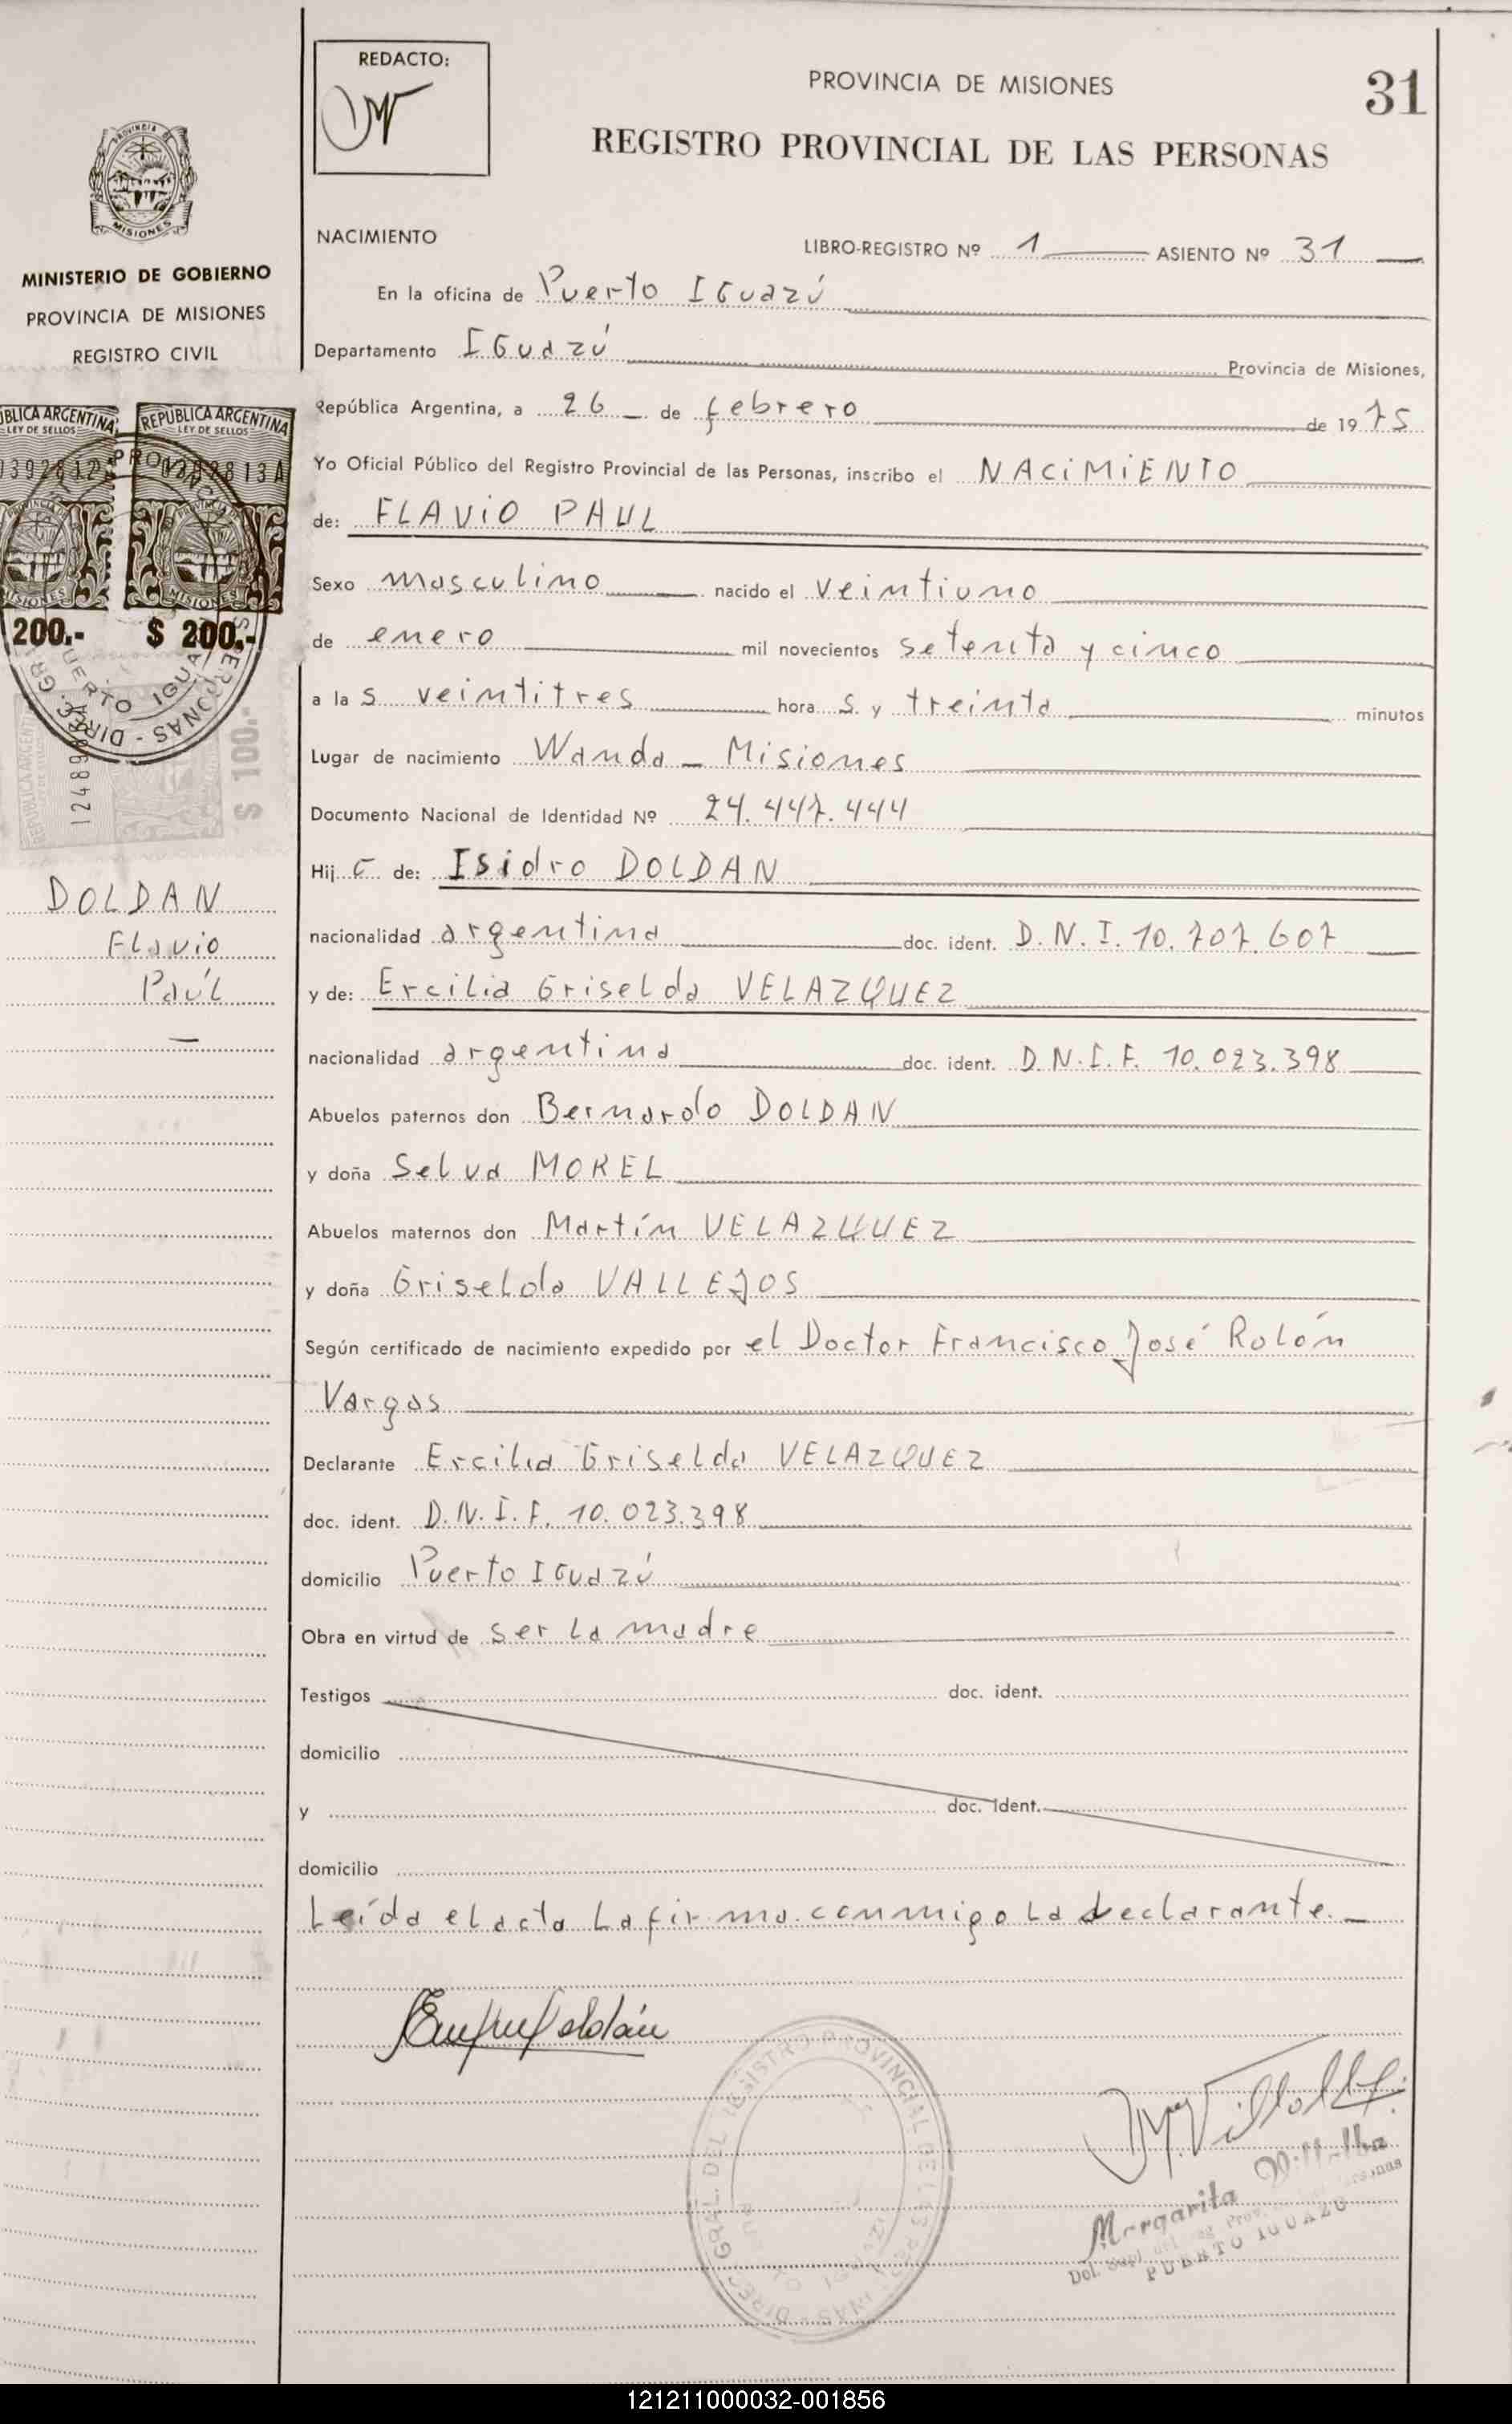 REDACTO:
PROVINCIA DE MISIONES
31
REGISTRO PROVINCIAL DE LAS PERSONAS
PROVINCIA DE
MISIONES
MINISTERIO DE GOBIERNO
PROVINCIA DE MISIONES
REGISTRO CIVIL
NACIMIENTO
LIBRO-REGISTRO Nº 1 ASIENTO Nº 31
En la oficina de Puerto IGuazú
Departamento IGuazú Provincia de Misiones,
República Argentina, a 26 de febrero de 1975
Yo Oficial Público del Registro Provincial de las Personas, inscribo el NACIMIENTO
de: FLAVIO PAUL
Sexo masculino nacido el veintiuno
de enero mil novecientos setenta y cinco
a las veintitres horas y treinta minutos
Lugar de nacimiento Wanda - Misiones
Documento Nacional de Identidad Nº 24.447.444
Hijo de: Isidro DOLDAN
nacionalidad argentina doc. ident. D.N.I. 10.707.607
y de: Ercilia Griselda VELAZQUEZ
nacionalidad argentina doc. ident. D.N.I.F. 10.023.398
Abuelos paternos don Bernardo DOLDAN
y doña Selva MOREL
Abuelos maternos don Martín VELAZQUEZ
y doña Griselda VALLEJOS
Según certificado de nacimiento expedido por el Doctor Francisco José Rolón
Vargas
Declarante Ercilia Griselda VELAZQUEZ
doc. ident. D.N.I.F. 10.023.398
domicilio Puerto IGuazú
Obra en virtud de ser la madre
Testigos doc. ident.
domicilio
y doc. ident.
domicilio
Leída el acta La firma conmigo La declarante.-
REPUBLICA ARGENTINA
LEY DE SELLOS
REPUBLICA ARGENTINA
LEY DE SELLOS
MISIONES
MISIONES
200.-
$ 200.-
$ 100.-
DOLDAN
Flavio
Paúl
-
DIREC. GRAL. DEL REGISTRO PROVINCIAL DE LAS PERSONAS
Margarita Villalba
PUERTO IGUAZU
121211000032-001856